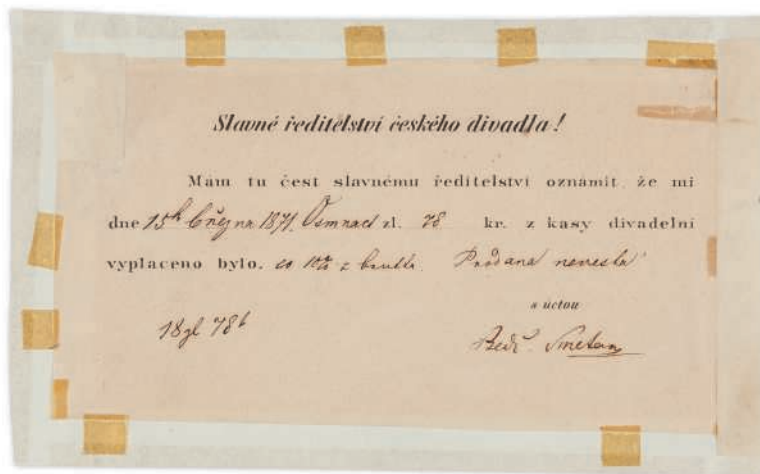 Slavné ředitelství českého divadla!
Mám tu čest slavnému ředitelství oznámit že mi
dne 15h března 1871. Osmnact zl. 78 kr. z kasy divadelní
vyplaceno bylo. co 10% z brutto. Prodana nevesta
s úctou
18 zl 78k
Bedř. Smetana